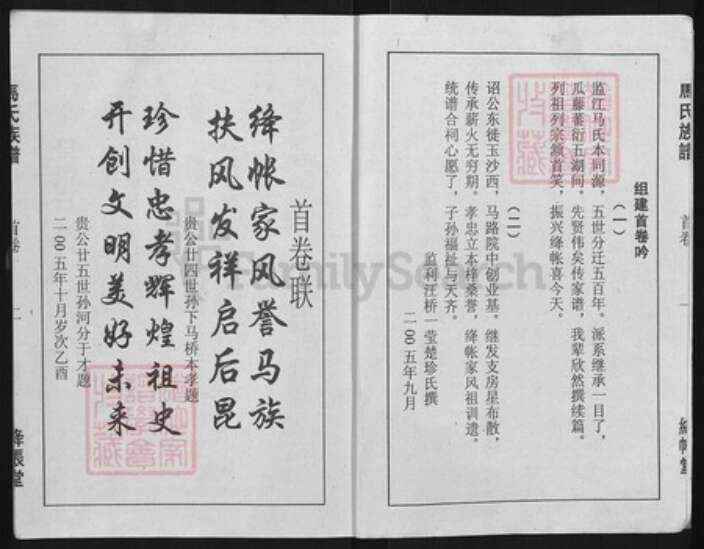 组建首卷吟
（一）
监江马氏本同源，五世分迁五百年。派系继承一目了，
瓜藤蕃衍五湖间。先贤伟矣传家谱，我辈欣然撰续篇。
列祖列宗颔首笑，振兴绛帐喜今天。
（二）
诏公东徙玉沙西，马路院中创业基。继发支房星布散，
传承薪火无穷期。孝忠立本梓桑誉，绛帐家风祖训遗。
统谱合祠心愿了，子孙福祉与天齐。
监利汪桥一莹楚珍氏撰
二00五年九月
馬氏族譜
首卷
一
絳帳堂
首卷联
绛帐家风誉马族
扶风发祥启后昆
贵公廿四世孙下马桥本孝题
珍惜忠孝辉煌祖史
开创文明美好未来
贵公廿五世孙河分于才题
二00五年十月岁次乙酉
馬氏族譜
首卷
二
絳帳堂
FamilySearch